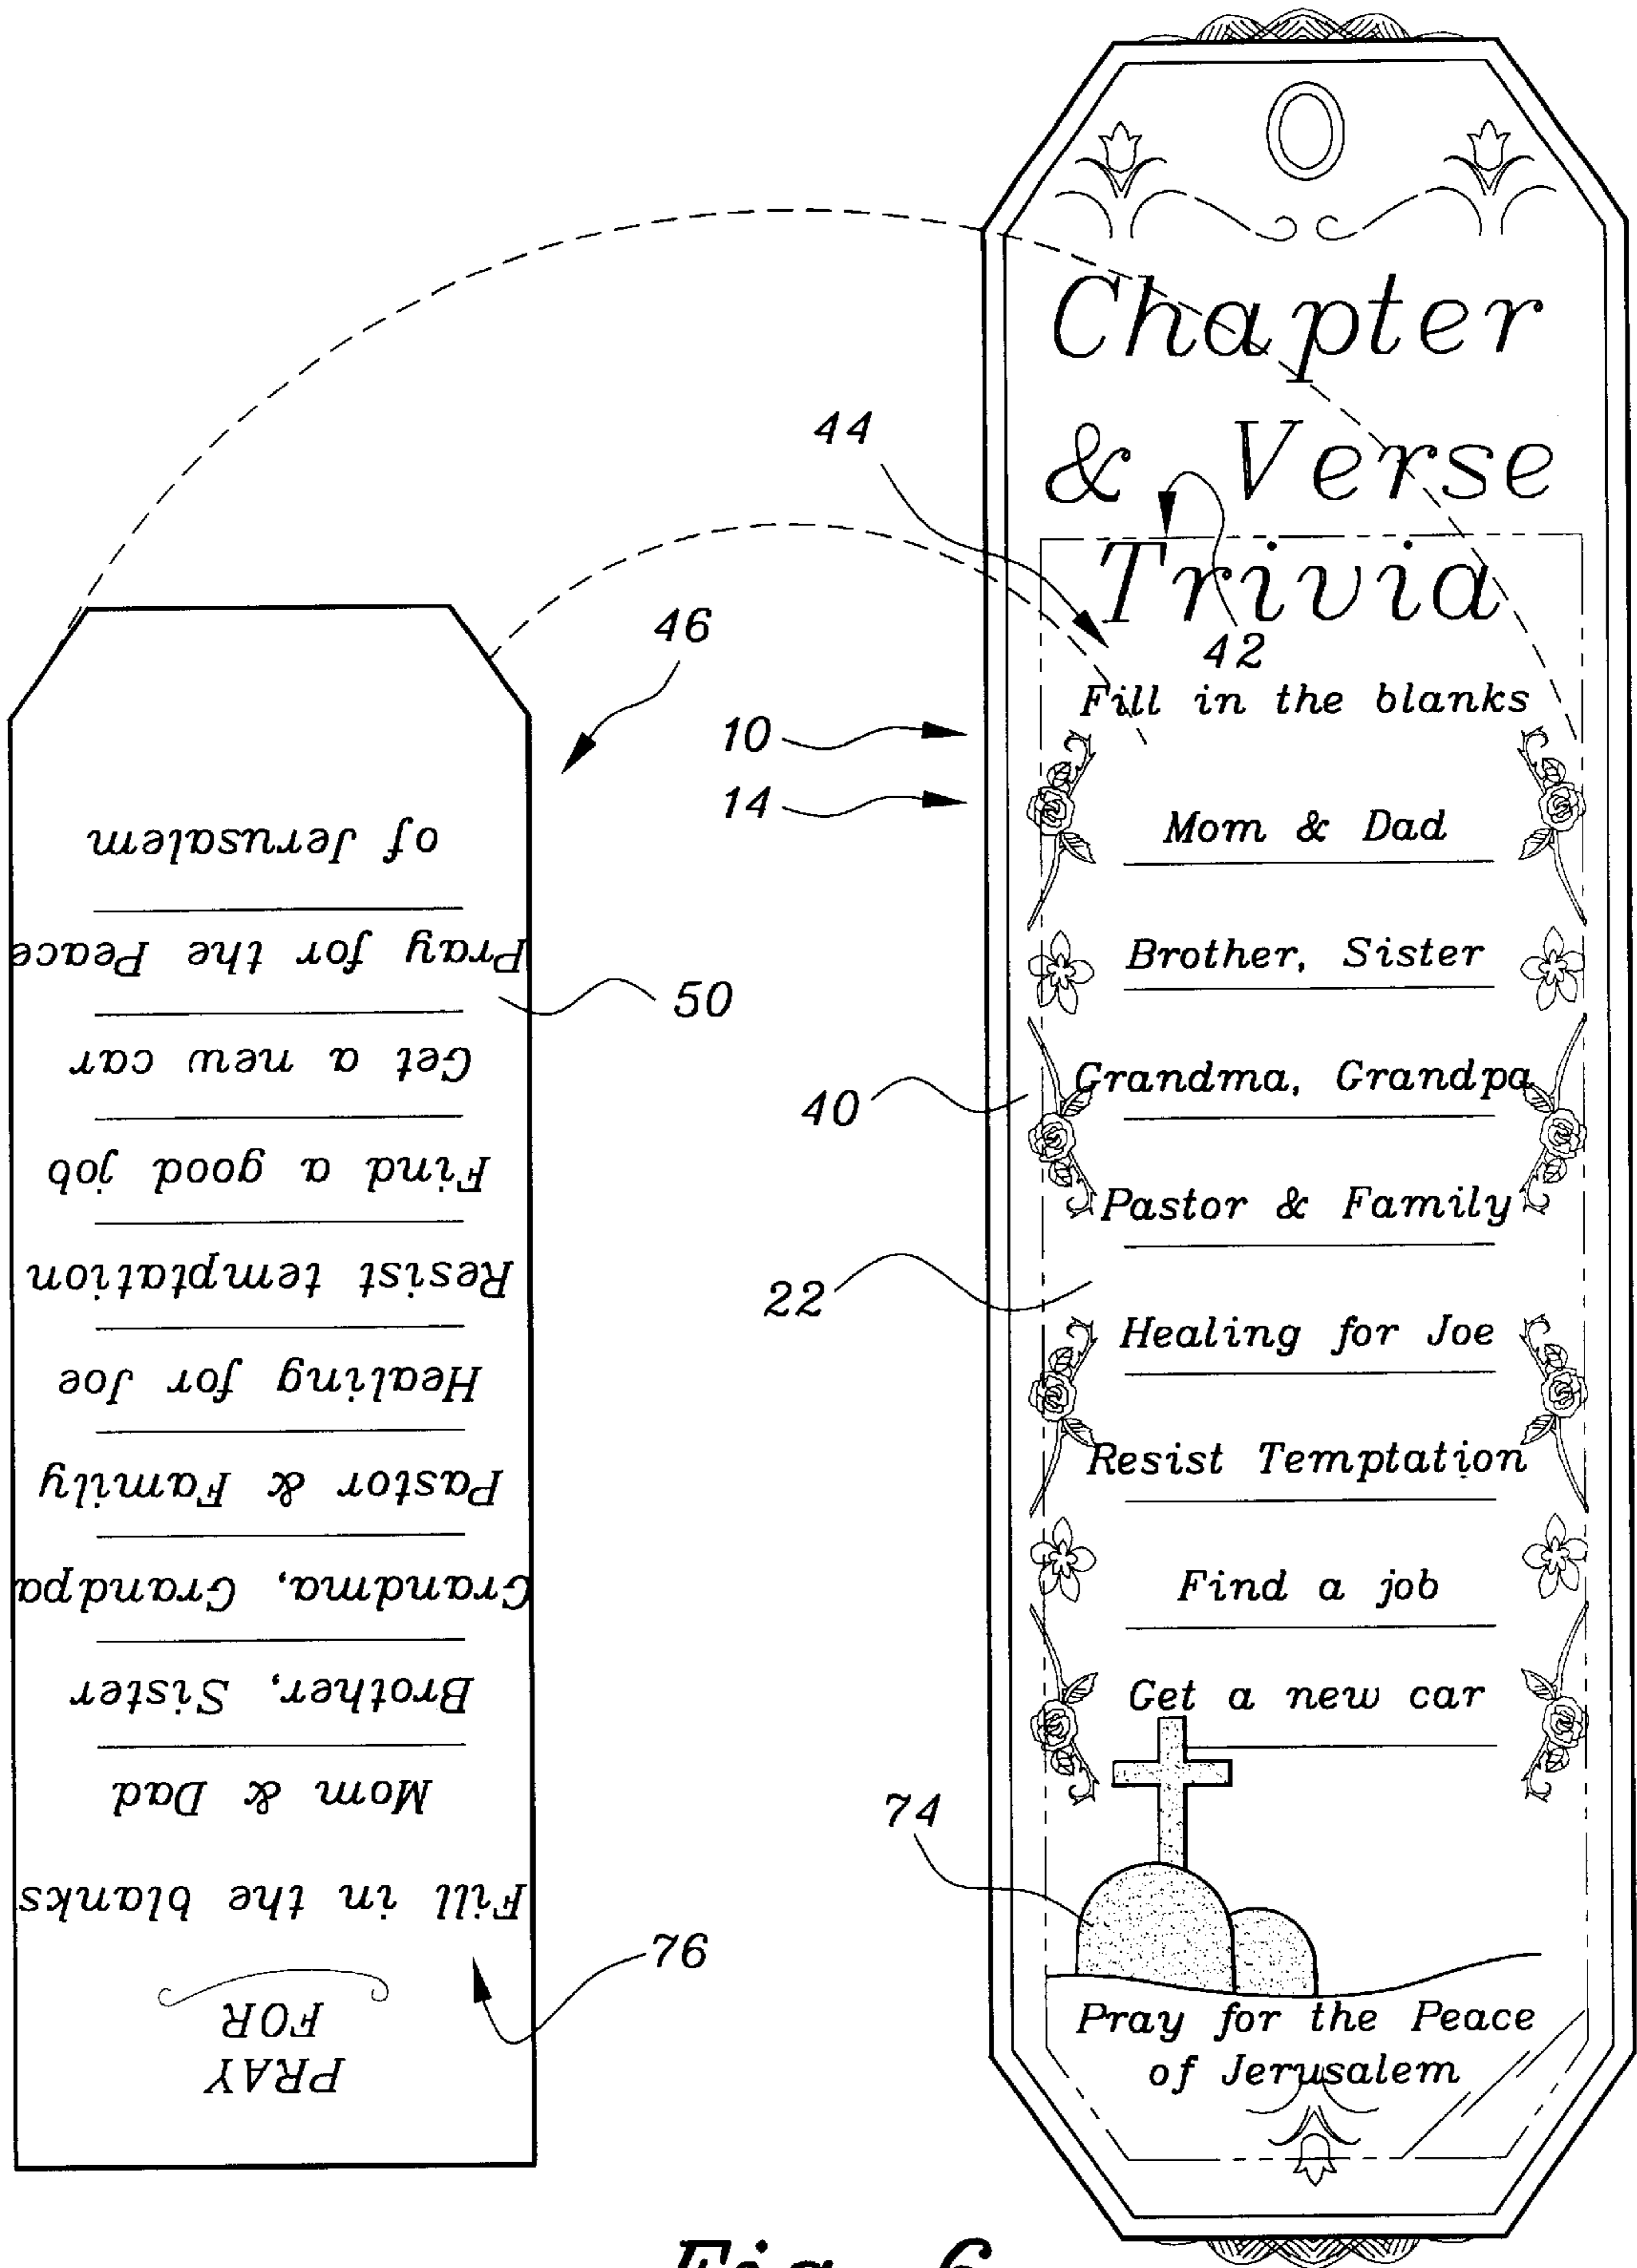 Chapter
& Verse
Trivia
Fill in the blanks
Mom & Dad
Brother, Sister
Grandma, Grandpa
Pastor & Family
Healing for Joe
Resist Temptation
Find a job
Get a new car
Pray for the Peace
of Jerusalem
44
42
46
10
14
50
40
22
74
76
PRAY
FOR
Fill in the blanks
Mom & Dad
Brother, Sister
Grandma, Grandpa
Pastor & Family
Healing for Joe
Resist temptation
Find a good job
Get a new car
Pray for the Peace
of Jerusalem
Fig. 6